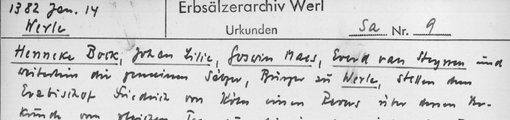 1382 Jan. 14
Werle
Erbsälzerarchiv Werl
Urkunden Sa Nr. 9
Henneke Bock, Johan Lilie, Goswin Maes, Everd van Steynen und
weiterhin die gemeinen Sälzer, Bürger zu Werle, stellen dem
Erzbischof Friedrich von Köln einen Revers über dessen Ur-
kunde vom gleichen